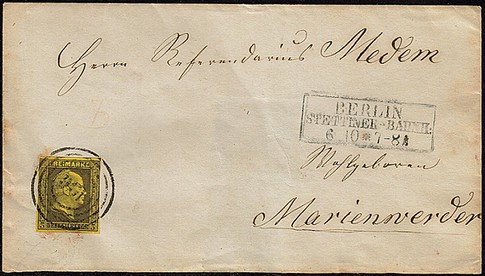 Herrn Referendarius Medem
BERLIN
STETTINER-BAHNH.
6 10 * 7-8
Wohlgeboren
Marienwerder
FREIMARKE